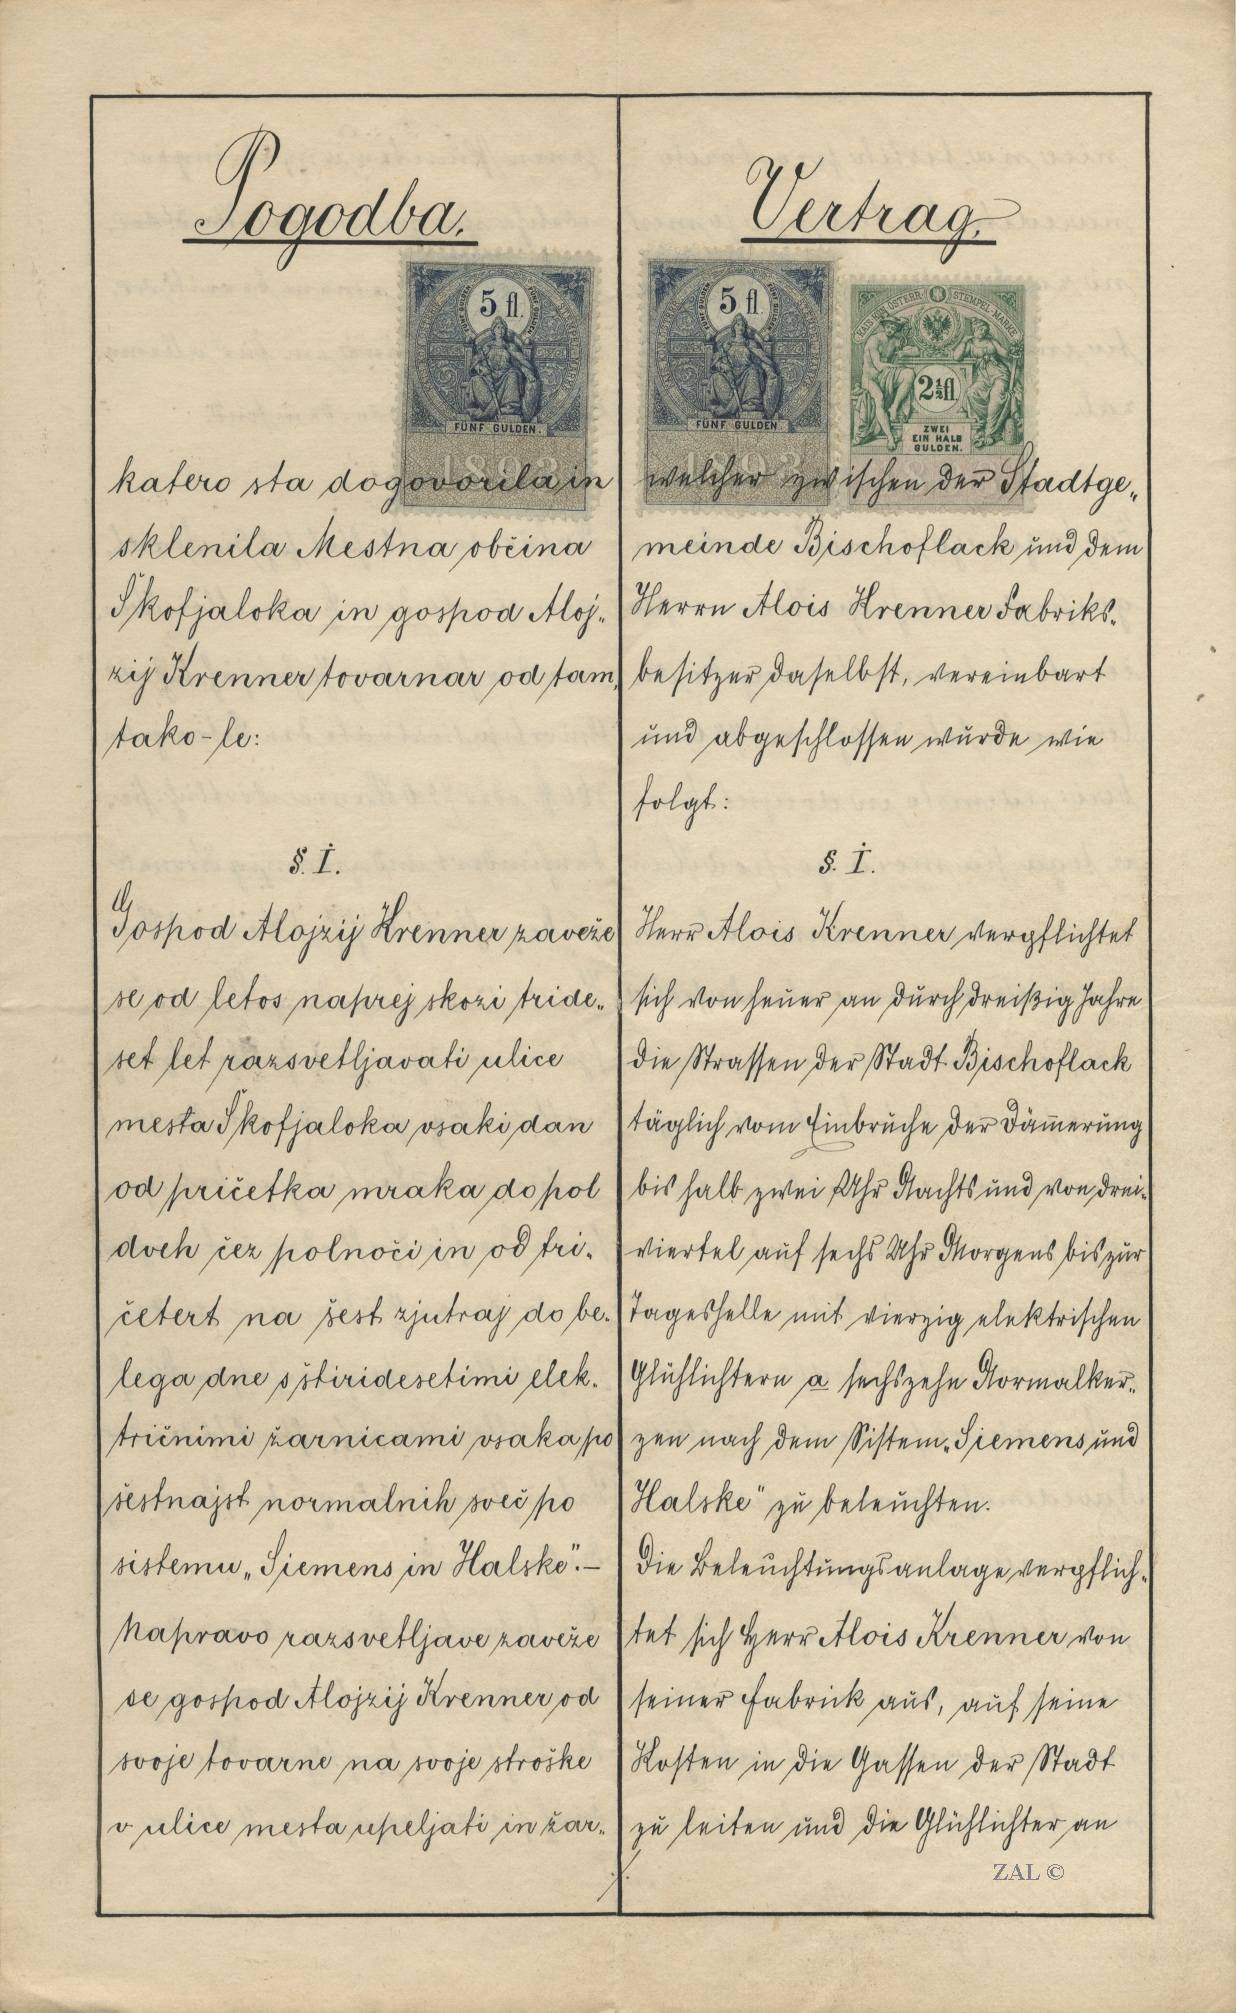 Pogodba.
5 fl.
FÜNF GULDEN.
1893
katero sta dogovorila in
sklenila Mestna občina
Škofjaloka in gospod Aloj-
zij Krenner tovarnar od tam,
tako-le:
§. I.
Gospod Alojzij Krenner zaveže
se od letos naprej skozi tride-
set let razsvetljavati ulice
mesta Škofjaloka vsaki dan
od pričetka mraka do pol
dveh čez polnoči in od tri-
četert na šest zjutraj do be-
lega dne s štiridesetimi elek-
tričnimi žarnicami vsaka po
šestnajst normalnih sveč po
sistemu „Siemens in Halske".—
Napravo razsvetljave zaveže
se gospod Alojzij Krenner od
svoje tovarne na svoje stroške
v ulice mesta upeljati in žar-
Vertrag.
5 fl.
FÜNF GULDEN.
1893
KAIS. KÖN. ÖSTERR. STEMPEL-MARKE
2½ fl.
ZWEI
EIN HALB
GULDEN.
welcher zwischen der Stadtge-
meinde Bischoflack und dem
Herrn Alois Krenner Fabriks-
besitzer daselbst, vereinbart
und abgeschlossen wurde wie
folgt:
§. I.
Herr Alois Krenner verpflichtet
sich von heuer an durch dreißig Jahre
die Strassen der Stadt Bischoflack
täglich vom Einbruche der Däm̅erung
bis halb zwei Uhr Nachts und von drei-
viertel auf sechs Uhr Morgens bis zur
Tageshelle mit vierzig elektrischen
Glühlichtern a sechszehn Normalker-
zen nach dem Sistem „Siemens und
Halske" zu beleuchten.
Die Beleuchtungsanlage verpflich-
tet sich Herr Alois Krenner von
seiner Fabrick aus, auf seine
Kosten in die Gassen der Stadt
zu leiten und die Glühlichter an
./.
ZAL ©